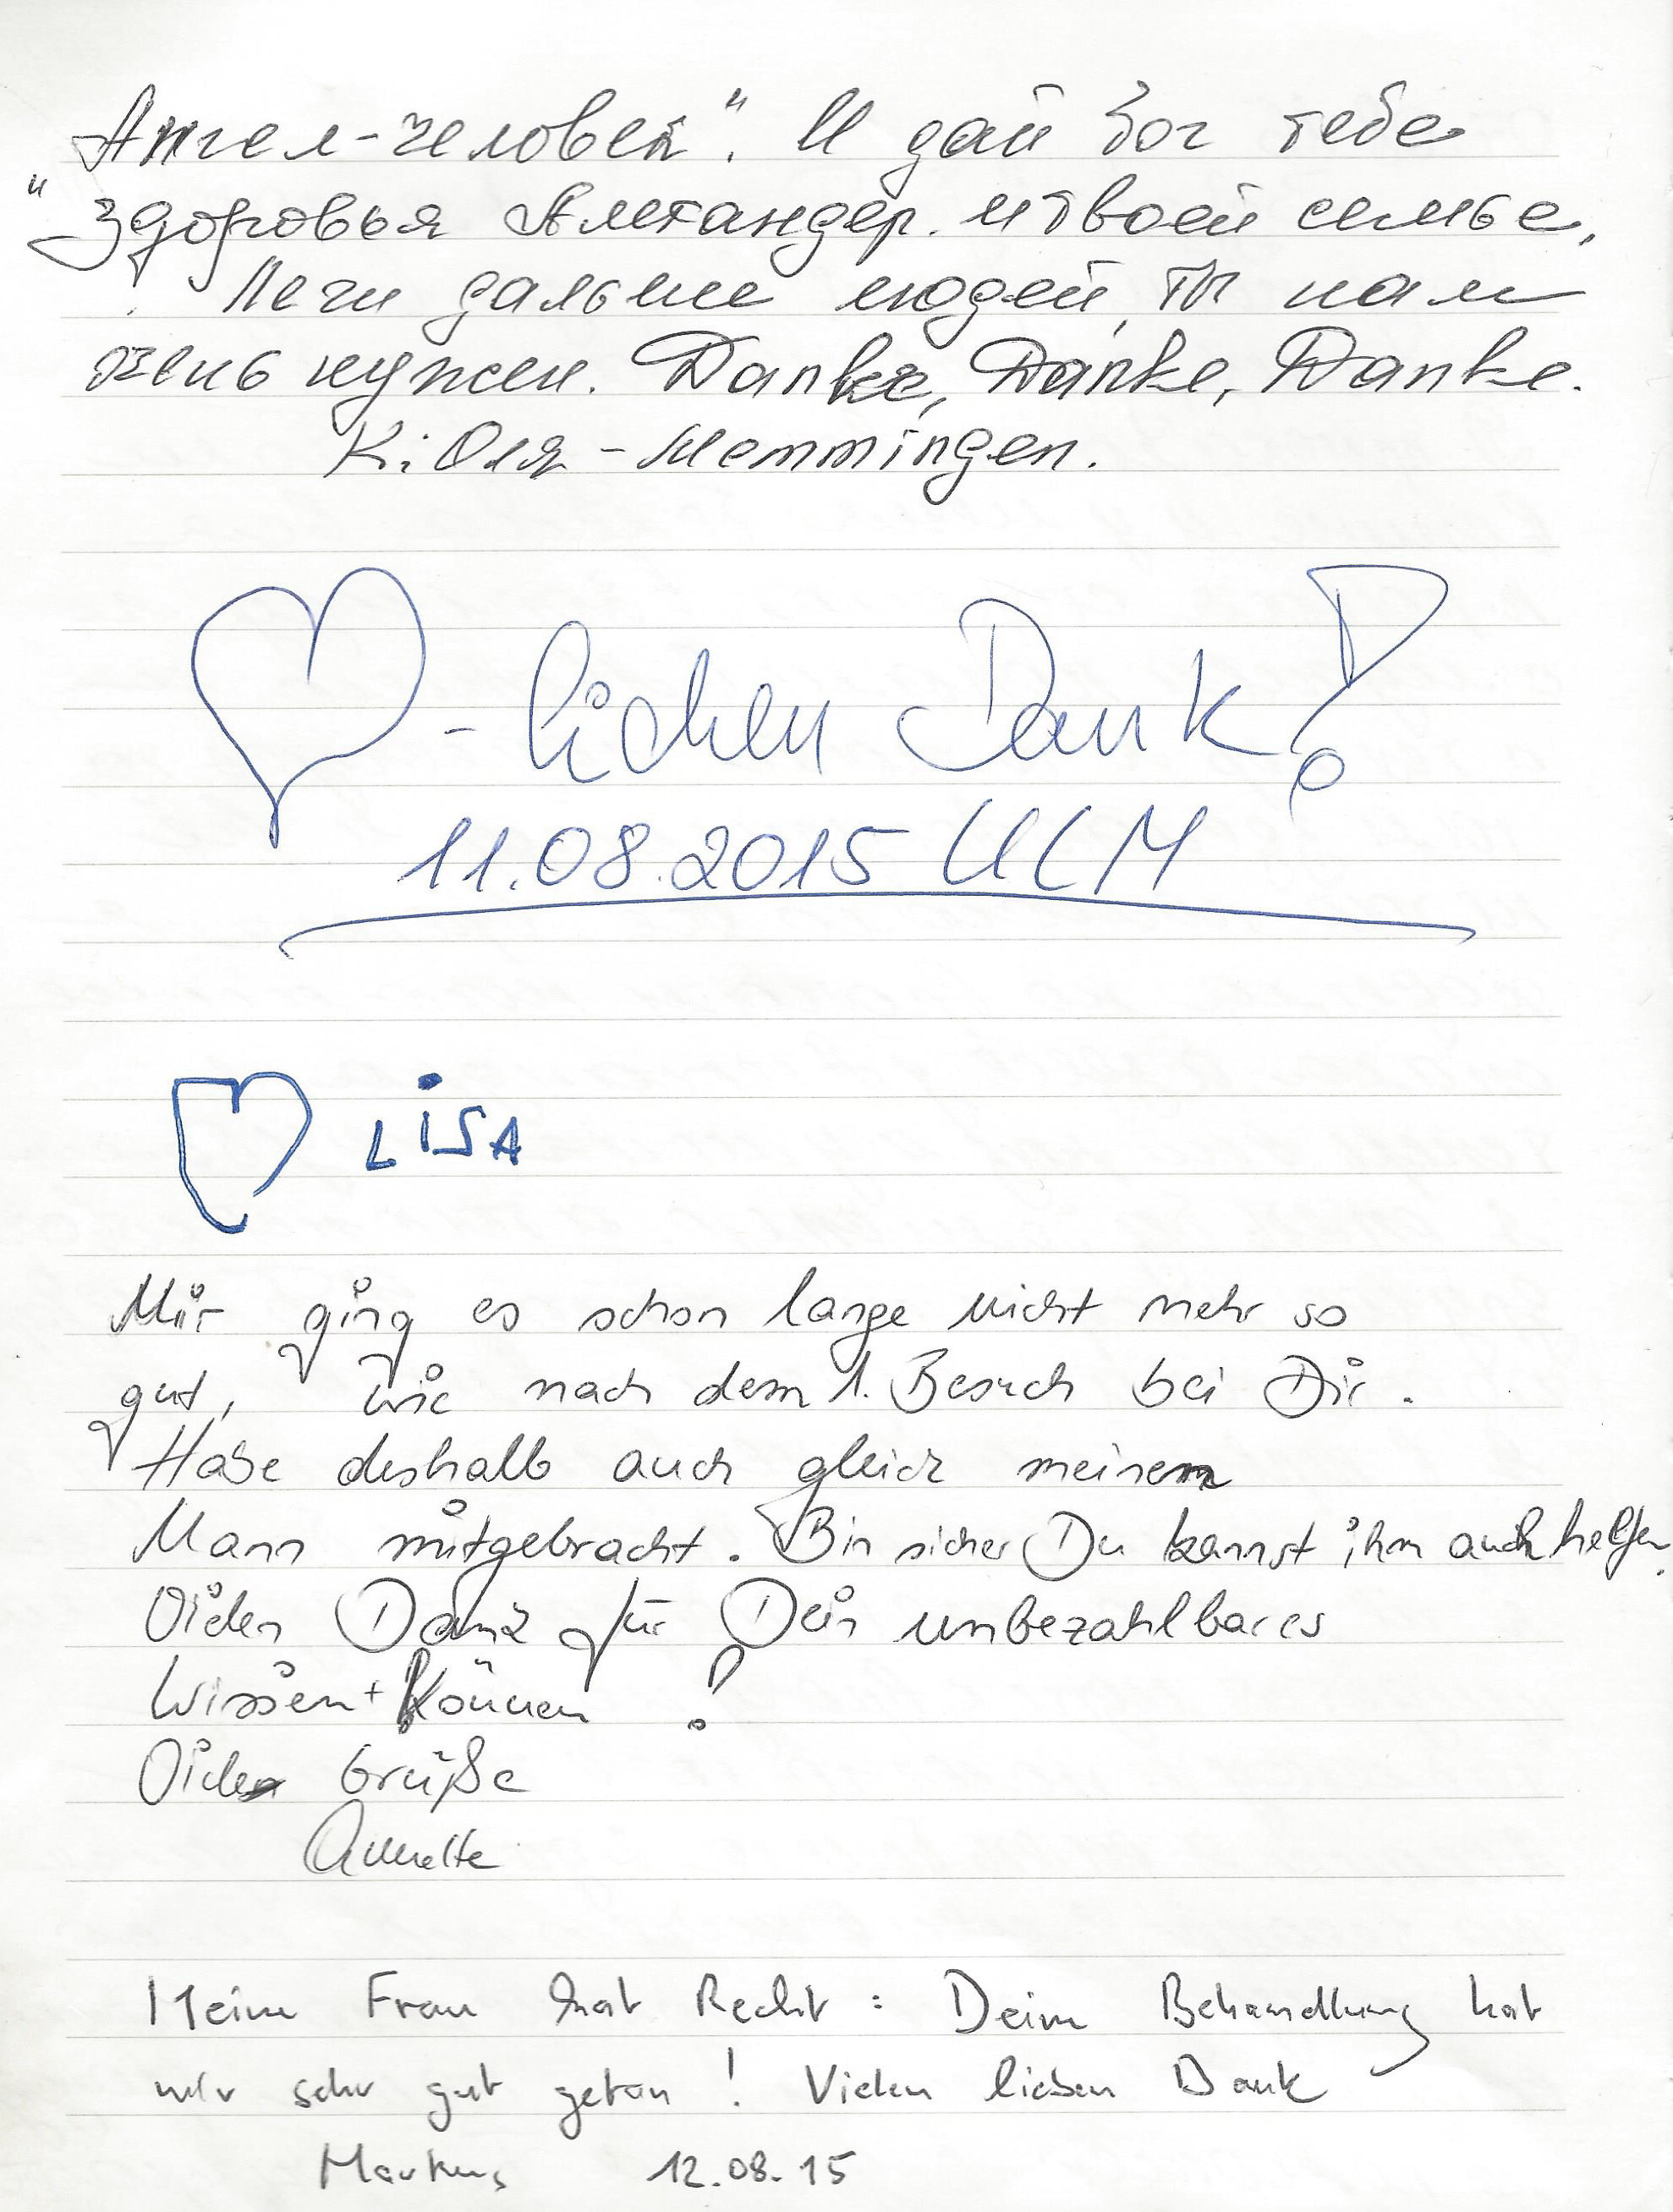 Ангел-человек". И дай Бог тебе
"здоровья Александер. и твоей семье,
Лечи дальше людей, ты нам
очень нужен. Danke, Danke, Danke.
K. Оля - Memmingen.
- lichen Dank!
11.08.2015 ULM
LiSA
Mir ging es schon lange nicht mehr so
gut, wie nach dem 1. Besuch bei Dir.
Habe deshalb auch gleich meinen
Mann mitgebracht. Bin sicher Du kannst ihm auch helfen.
Vielen Dank für Dein unbezahlbares
Wissen + Können!
Viele Grüße
Annette
Meine Frau hat Recht: Deine Behandlung hat
mir sehr gut getan! Vielen lieben Dank
Markus 12.08.15